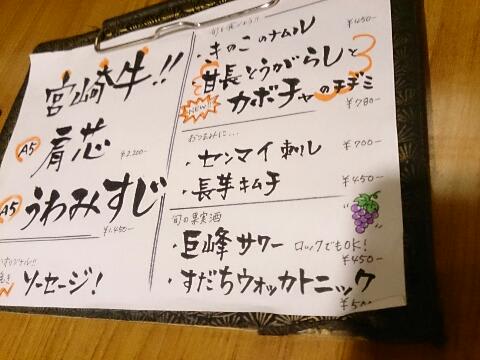 宮崎牛!!
A5
肩芯
¥2,200-
A5
うわみすじ
¥1,450-
ソーセージ!
¥450-
・きのこのナムル
・甘長とうがらしと
NEW!
カボチャのチヂミ
¥780-
おつまみに…
・センマイ刺し
¥700-
・長芋キムチ
¥450-
旬の果実酒
・巨峰サワー ロックでもOK!
¥450-
・すだちウォッカトニック